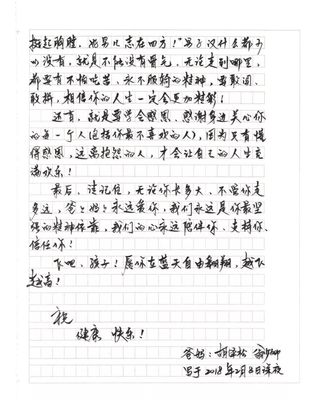 挺起胸膛，好男儿志在四方！”男子汉什么都可
以没有，就是不能没有骨气，无论走到哪里，
都要有不怕吃苦、永不服输的精神，要敢闯、
敢拼，相信你的人生一定会更加精彩！
还有，就是要学会感恩、感谢身边关心你
的每一个人（包括你最不喜欢的人），因为只有懂
得感恩、远离抱怨的人，才会让自己的人生充
满欢乐！
最后，请记住，无论你长多大、不管你走
多远，爸爸妈妈永远爱你，我们永远是你最坚
强的精神依靠，我们的心永远陪伴你、支持你、
信任你！
飞吧，孩子！愿你在蓝天自由翱翔，越飞
越高！
祝
健康 快乐！
爸妈：胡
写于2018年2月8日深夜